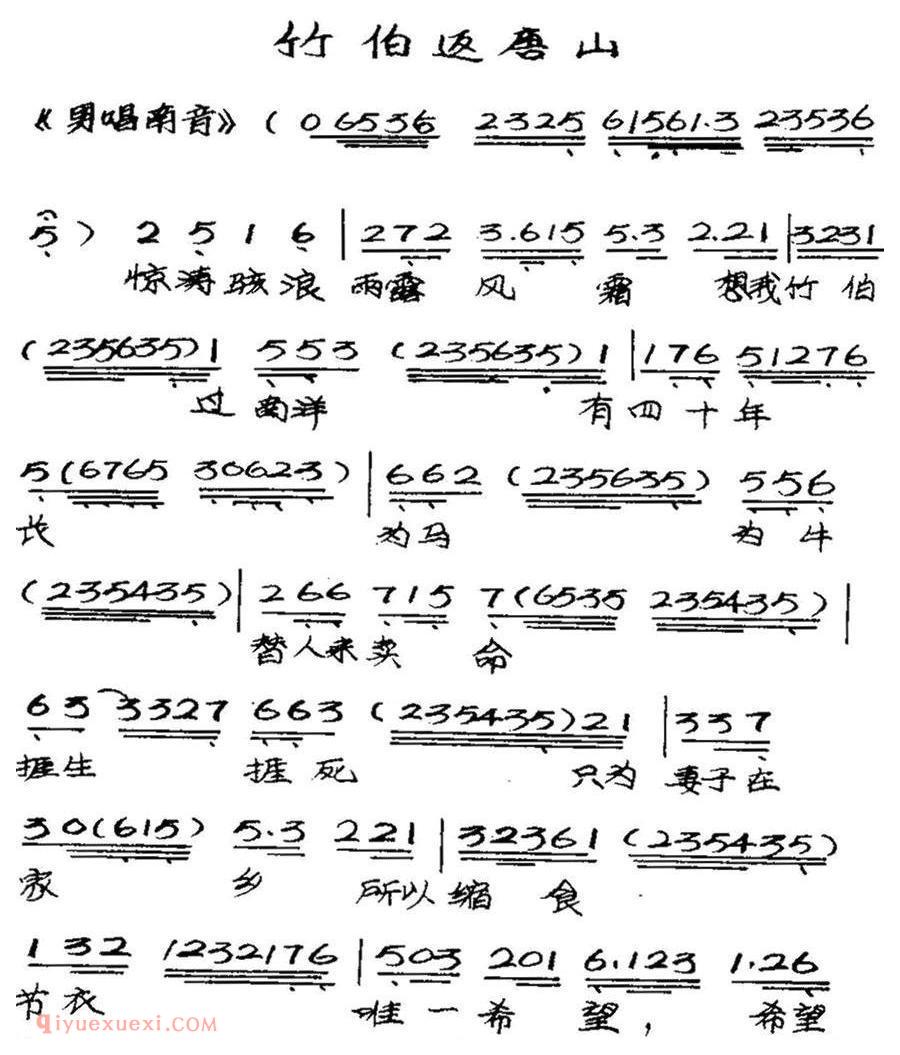 竹伯返唐山
《男唱南音》 ( 0 6 5 3 6 2 3 2 5 6 1 5 6 1 . 3 2 3 5 3 6
5 ) 2 5 1 6 | 2 7 2 3 . 6 1 5 5 . 3 2 . 2 1 | 3 2 3 1
惊涛骇浪 雨露 风 霜 想我竹伯
( 2 3 5 6 3 5 ) 1 5 5 3 ( 2 3 5 6 3 5 ) 1 | 1 7 6 5 1 2 7 6
过南洋 有四十年
5 ( 6 7 6 5 3 0 6 2 3 ) | 6 6 2 ( 2 3 5 6 3 5 ) 5 5 6
长 为马 为牛
( 2 3 5 4 3 5 ) | 2 6 6 7 1 5 7 ( 6 5 3 5 2 3 5 4 3 5 ) |
替人来卖 命
6 3 3 3 2 7 6 6 3 ( 2 3 5 4 3 5 ) 2 1 | 3 3 7
捱生 捱死 只为 妻子在
3 0 ( 6 1 5 ) 5 . 3 2 2 1 | 3 2 3 6 1 ( 2 3 5 4 3 5 )
家 乡 所以缩食
1 3 2 1 2 3 2 1 7 6 | 5 0 3 2 0 1 6 . 1 2 3 1 . 2 6
节衣 唯一希望， 希望
qiyuexuexi.com